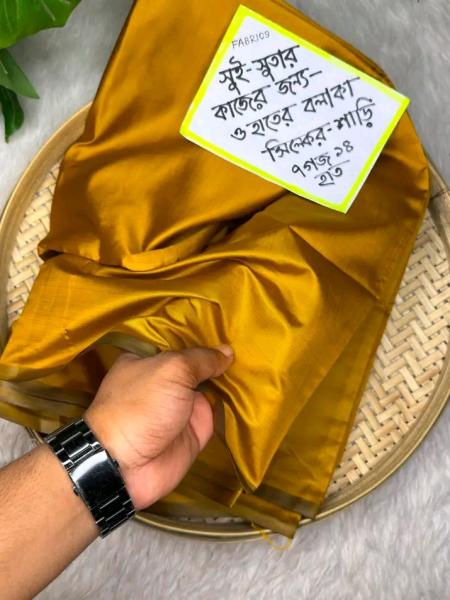 FABRI09
সুই-সুতার
কাজের জন্য-
ও হাতের বলাকা
সিল্কের-শাড়ি
৭গজ ১৪
হাত